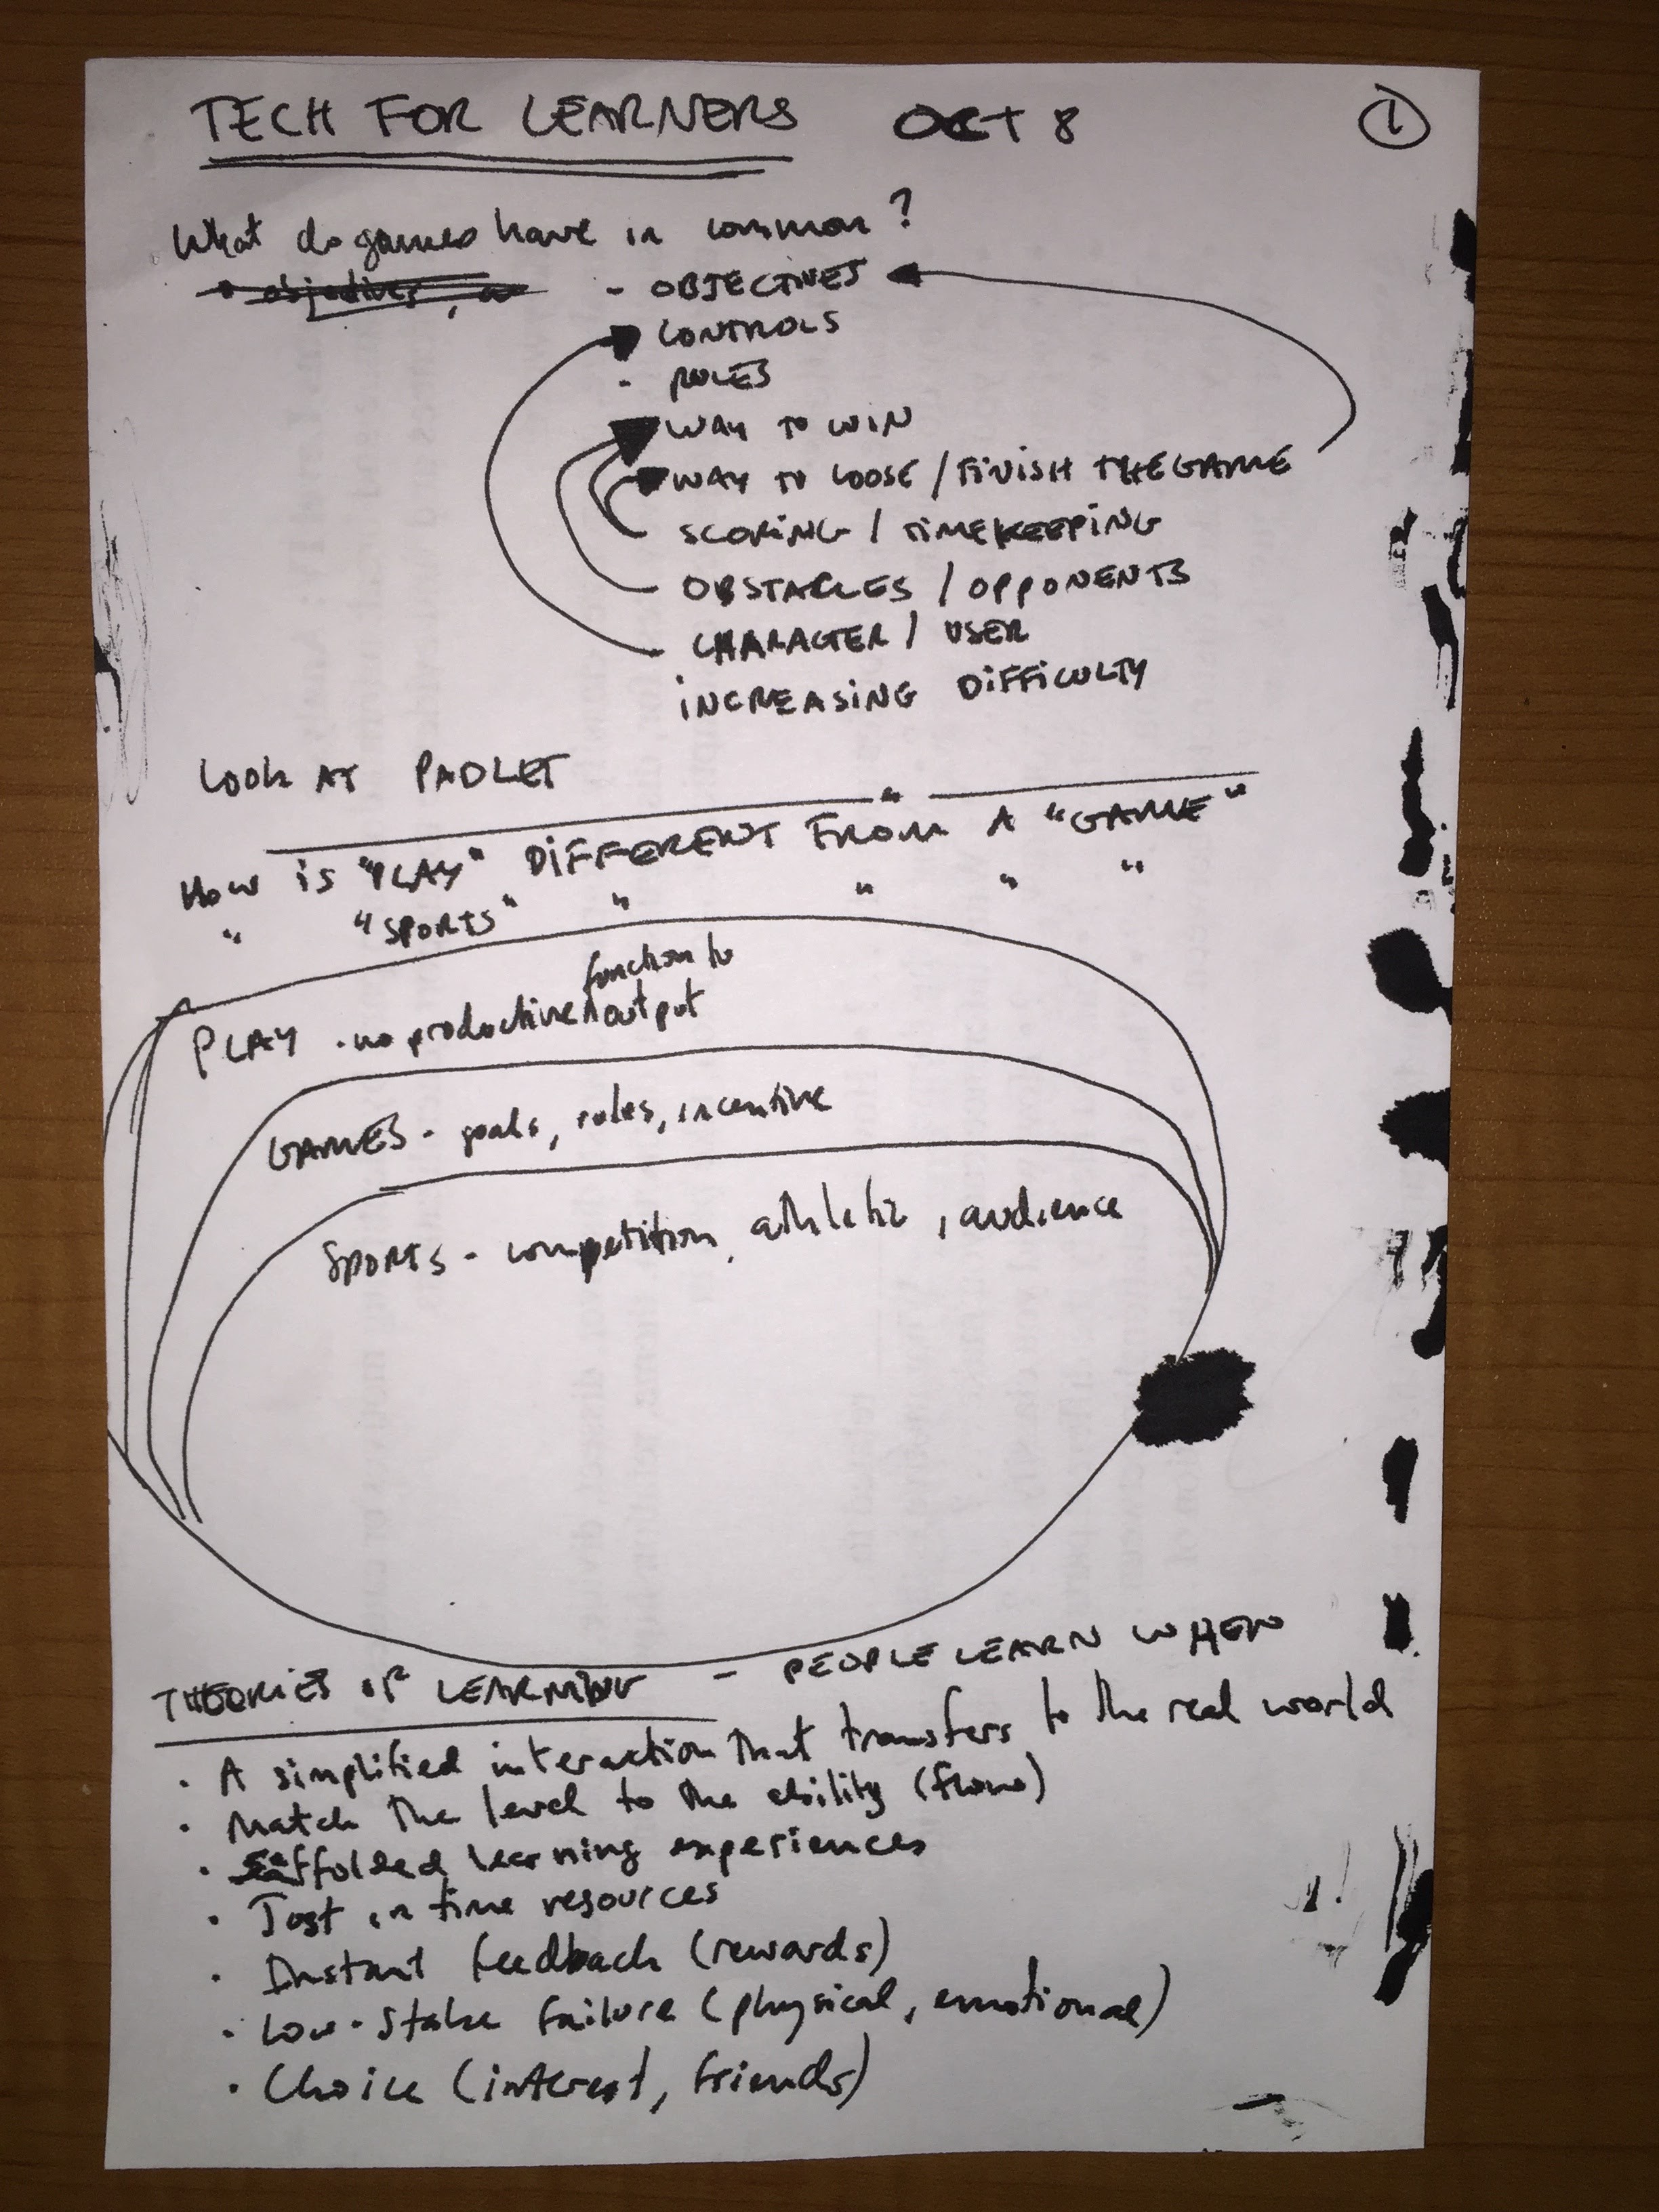 TECH FOR LEARNERS OCT 8 1
What do games have in common?
objectives,
- OBJECTIVES
CONTROLS
- RULES
WAY TO WIN
WAY TO LOOSE / FINISH THE GAME
SCORING / TIMEKEEPING
OBSTACLES / OPPONENTS
CHARACTER / USER
INCREASING DIFFICULTY
LOOK AT PADLET
HOW IS "PLAY" DIFFERENT FROM A "GAME"
" "SPORTS" " " " "
function to
PLAY - no productive output
GAMES - goals, rules, incentive
SPORTS - competition, athletic, audience
THEORIES OF LEARNING - PEOPLE LEARN WHEN
· A simplified interaction that transfers to the real world
· Match the level to the ability (flow)
· Scaffolded learning experiences
· Just in time resources
· Instant feedback (rewards)
· Low-stake failure (physical, emotional)
· Choice (interest, friends)